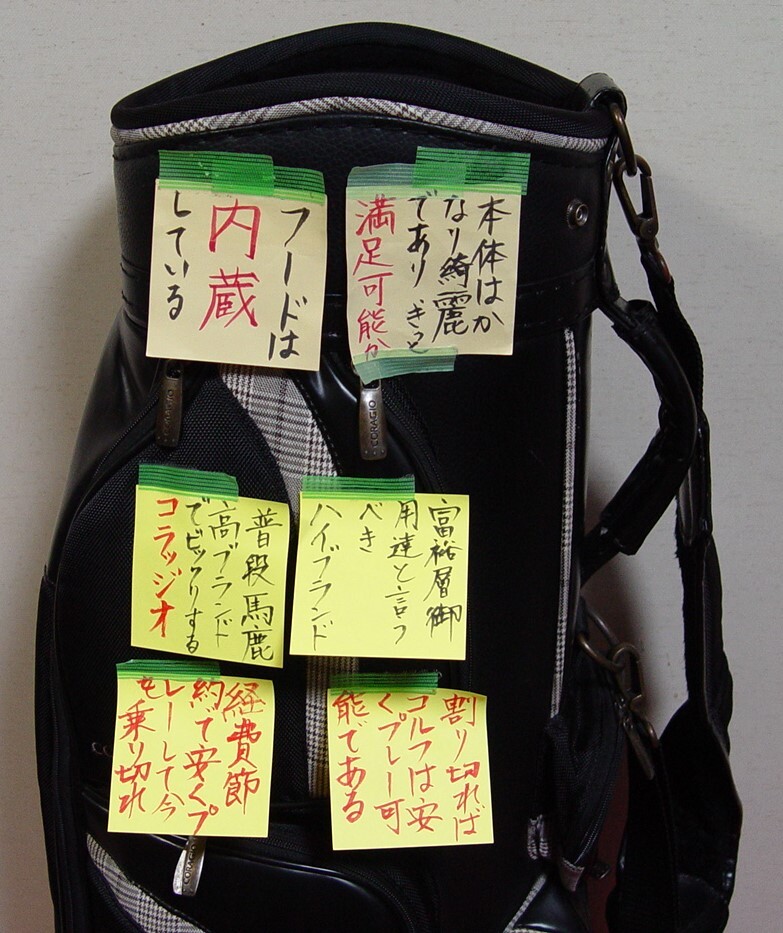 本体はか
なり綺麗
であり きっと
満足可能か
フードは
内蔵
している
富裕層御
用達と言う
べき
ハイブランド
普段馬鹿
高ブランド
でビックリする
コラッジオ
割り切れば
ゴルフは安
くプレー可
能である
経費節
約で安くプ
レーして今
も乗り切れ
CORAGIO
CORAGIO
CORAGIO